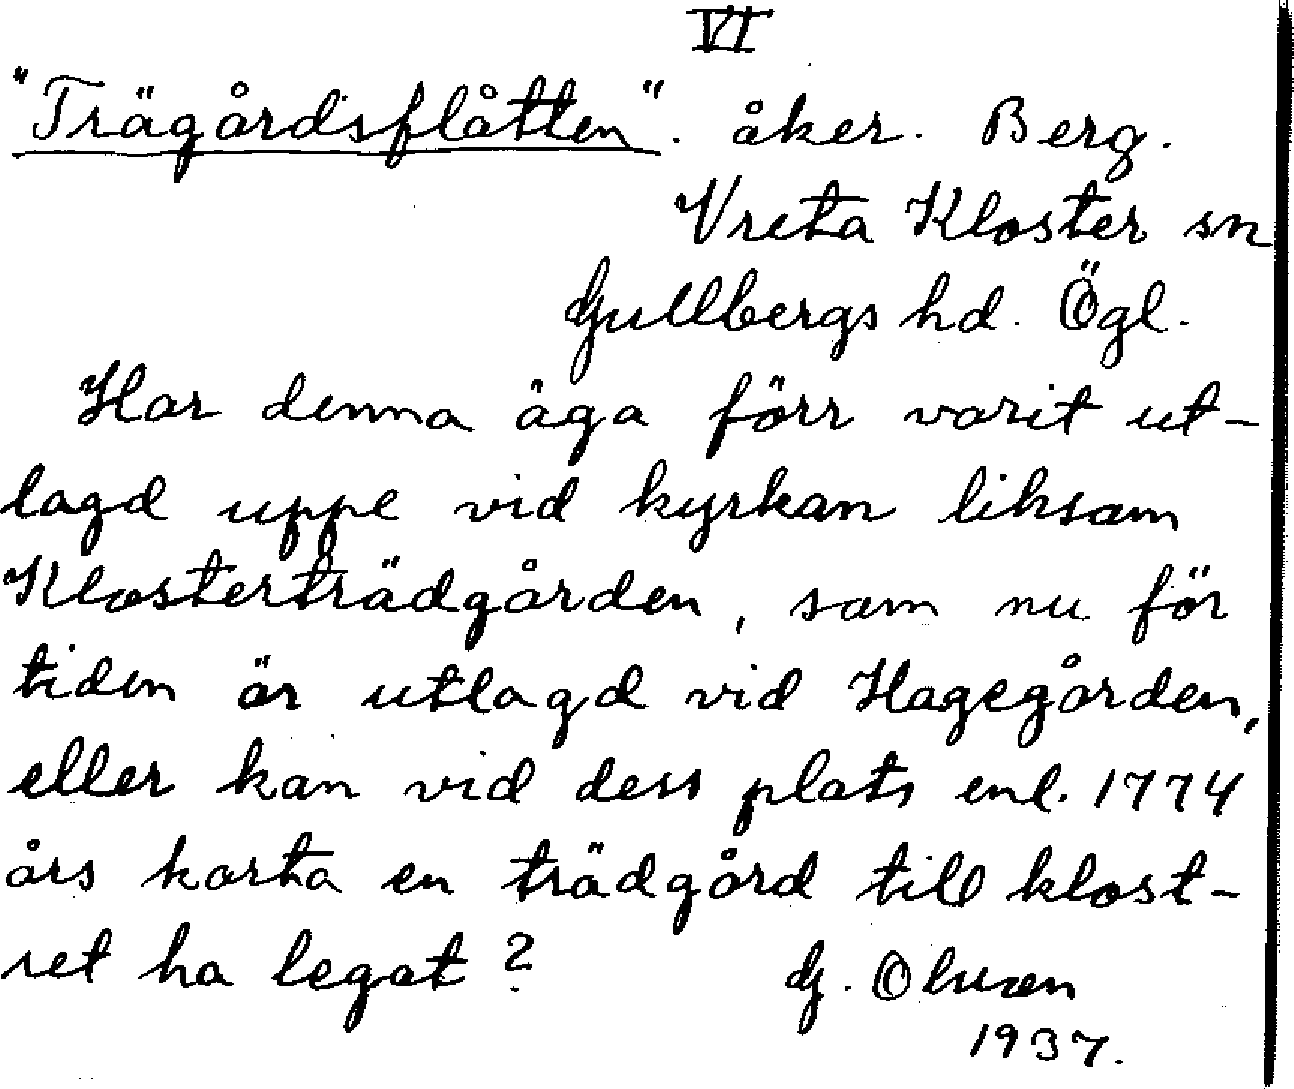 VI
"Trägårdsflåtten". åker. Berg.
Vreta Kloster sn
Gullbergs hd. Ögl.
Har denna äga förr varit ut-
lagd uppe vid kyrkan liksom
Klosterträdgården, som nu för
tiden är utlagd vid Hagegården,
eller kan vid dess plats enl. 1774
års karta en trädgård till klost-
ret ha legat?
G.
1937.